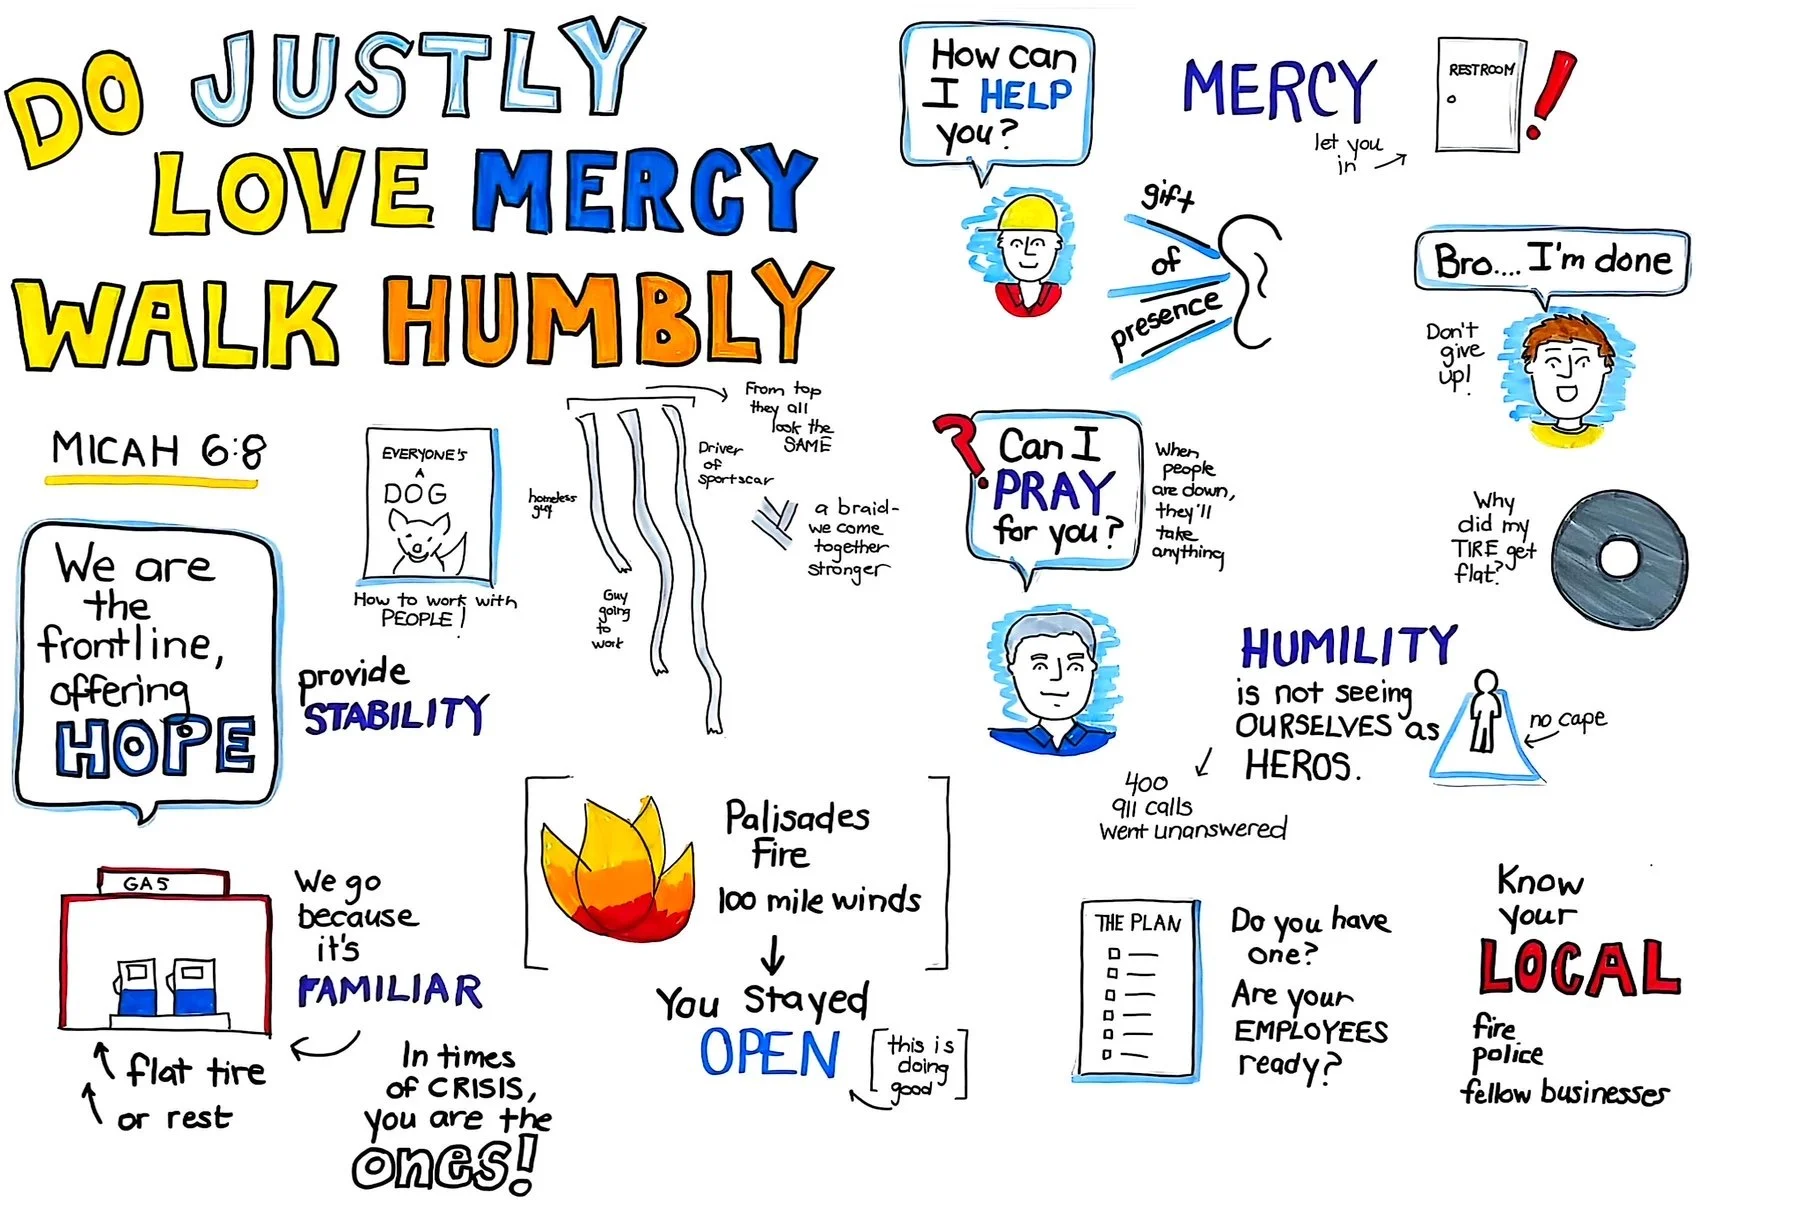 DO JUSTLY
LOVE MERCY
WALK HUMBLY
MICAH 6:8
We are
the
frontline,
offering
HOPE
EVERYONE'S
A
DOG
How to work with
PEOPLE!
provide
STABILITY
From top
they all
look the
SAME
homeless
guy
Guy
going
to
work
Driver
of
sportscar
a braid-
we come
together
stronger
GAS
flat tire
or rest
We go
because
it's
FAMILIAR
In times
of CRISIS,
you are the
ones!
Palisades
Fire
100 mile winds
You Stayed
OPEN
this is
doing
good
How can
I HELP
you?
gift
of
presence
MERCY
let you
in
RESTROOM
!
Bro.... I'm done
Don't
give
up!
?
Can I
PRAY
for you?
When
people
are down,
they'll
take
anything
Why
did my
TIRE get
flat?
HUMILITY
is not seeing
OURSELVES as
HEROS.
no cape
400
911 calls
went unanswered
THE PLAN
Do you have
one?
Are your
EMPLOYEES
ready?
Know
your
LOCAL
fire
police
fellow businesses